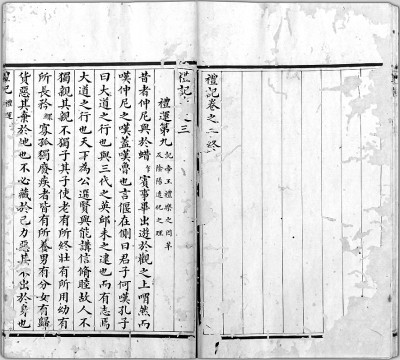 禮記卷之二終
禮記
之三
禮運第九
記帝王禮樂之因革
及陰陽造化之理
昔者仲尼與於蜡賓事畢出遊於觀之上喟然而
嘆仲尼之嘆蓋嘆魯也言偃在側曰君子何嘆孔子
曰大道之行也與三代之英丘未之逮也而有志焉
大道之行也天下為公選賢與能講信脩睦故人不
獨親其親不獨子其子使老有所終壯有所用幼有
所長矜寡孤獨廢疾者皆有所養男有分女有歸
貨惡其棄於地也不必藏於己力惡其不出於身也
禮記
禮運